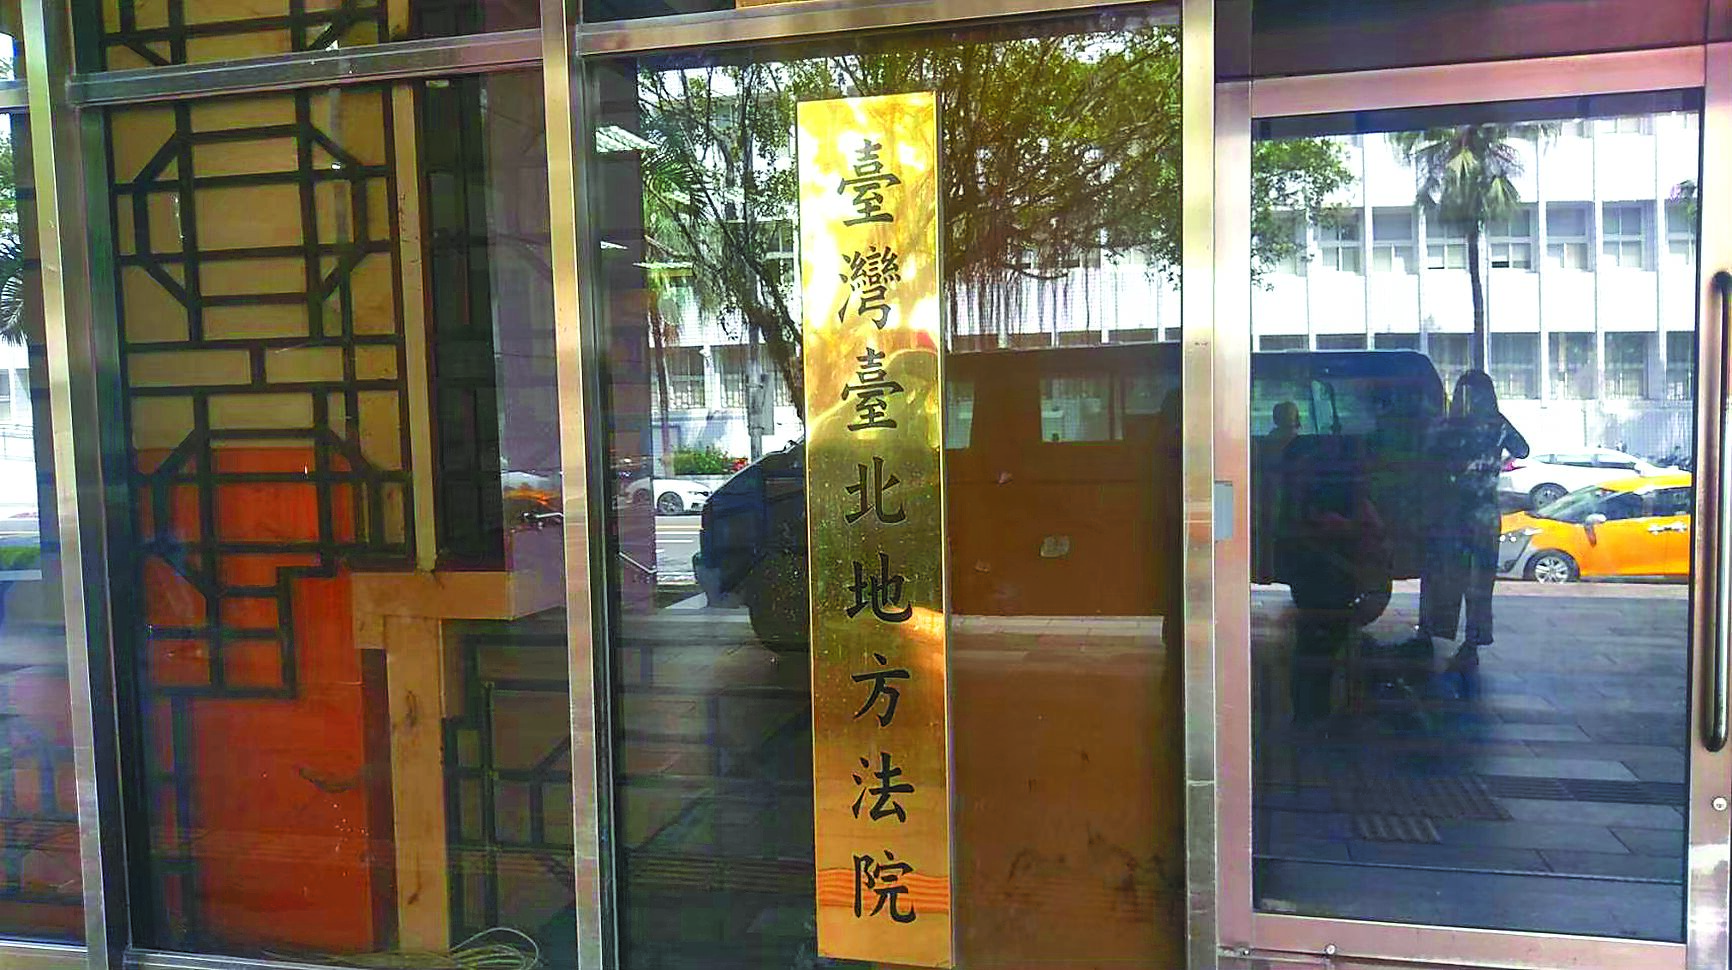 臺灣臺北地方法院